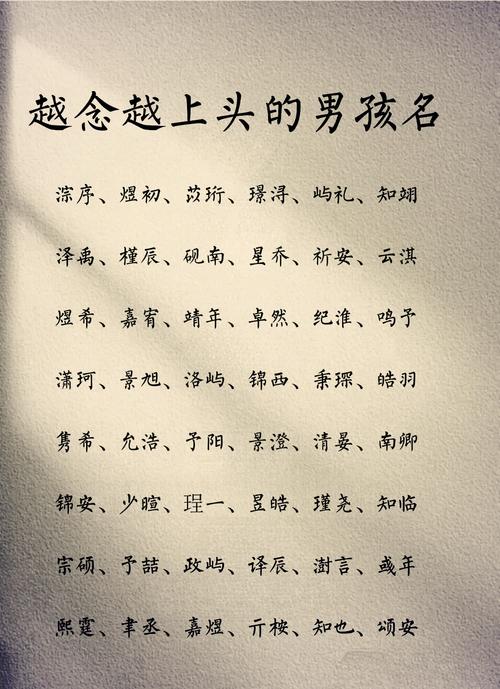 越念越上头的男孩名
淙序、煜初、苡珩、璟浔、屿礼、知翊
泽禹、槿辰、砚南、星乔、祈安、云淇
煜希、嘉宥、靖年、卓然、纪淮、鸣予
潇珂、景旭、洛屿、锦西、秉琛、皓羽
隽希、允浩、予阳、景澄、清晏、南卿
锦安、少暄、珵一、昱皓、瑾尧、知临
宗硕、予喆、政屿、译辰、澍言、彧年
熙霆、聿丞、嘉煜、亓桉、知也、颂安